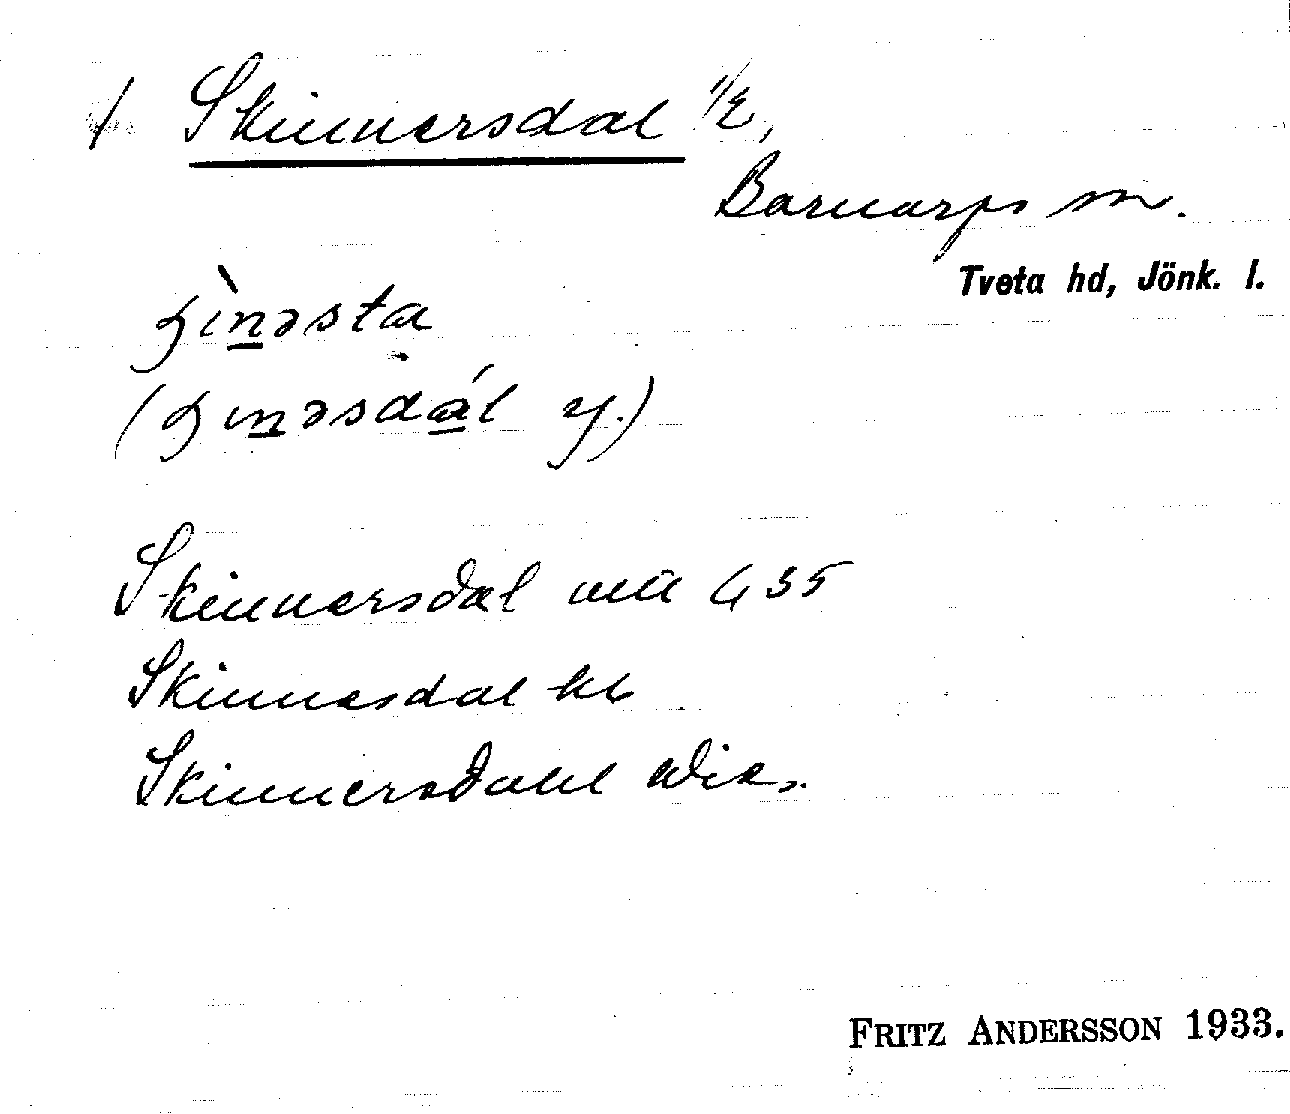 Skinnersdal 1/2,
Barnarps sn.
Tveta hd, Jönk. l.
ʂìnəsta
(ʂinəsdál y.)
Skinnersdal
Skinnesdal kb
Skinnersdahl Wies.
FRITZ ANDERSSON 1933.